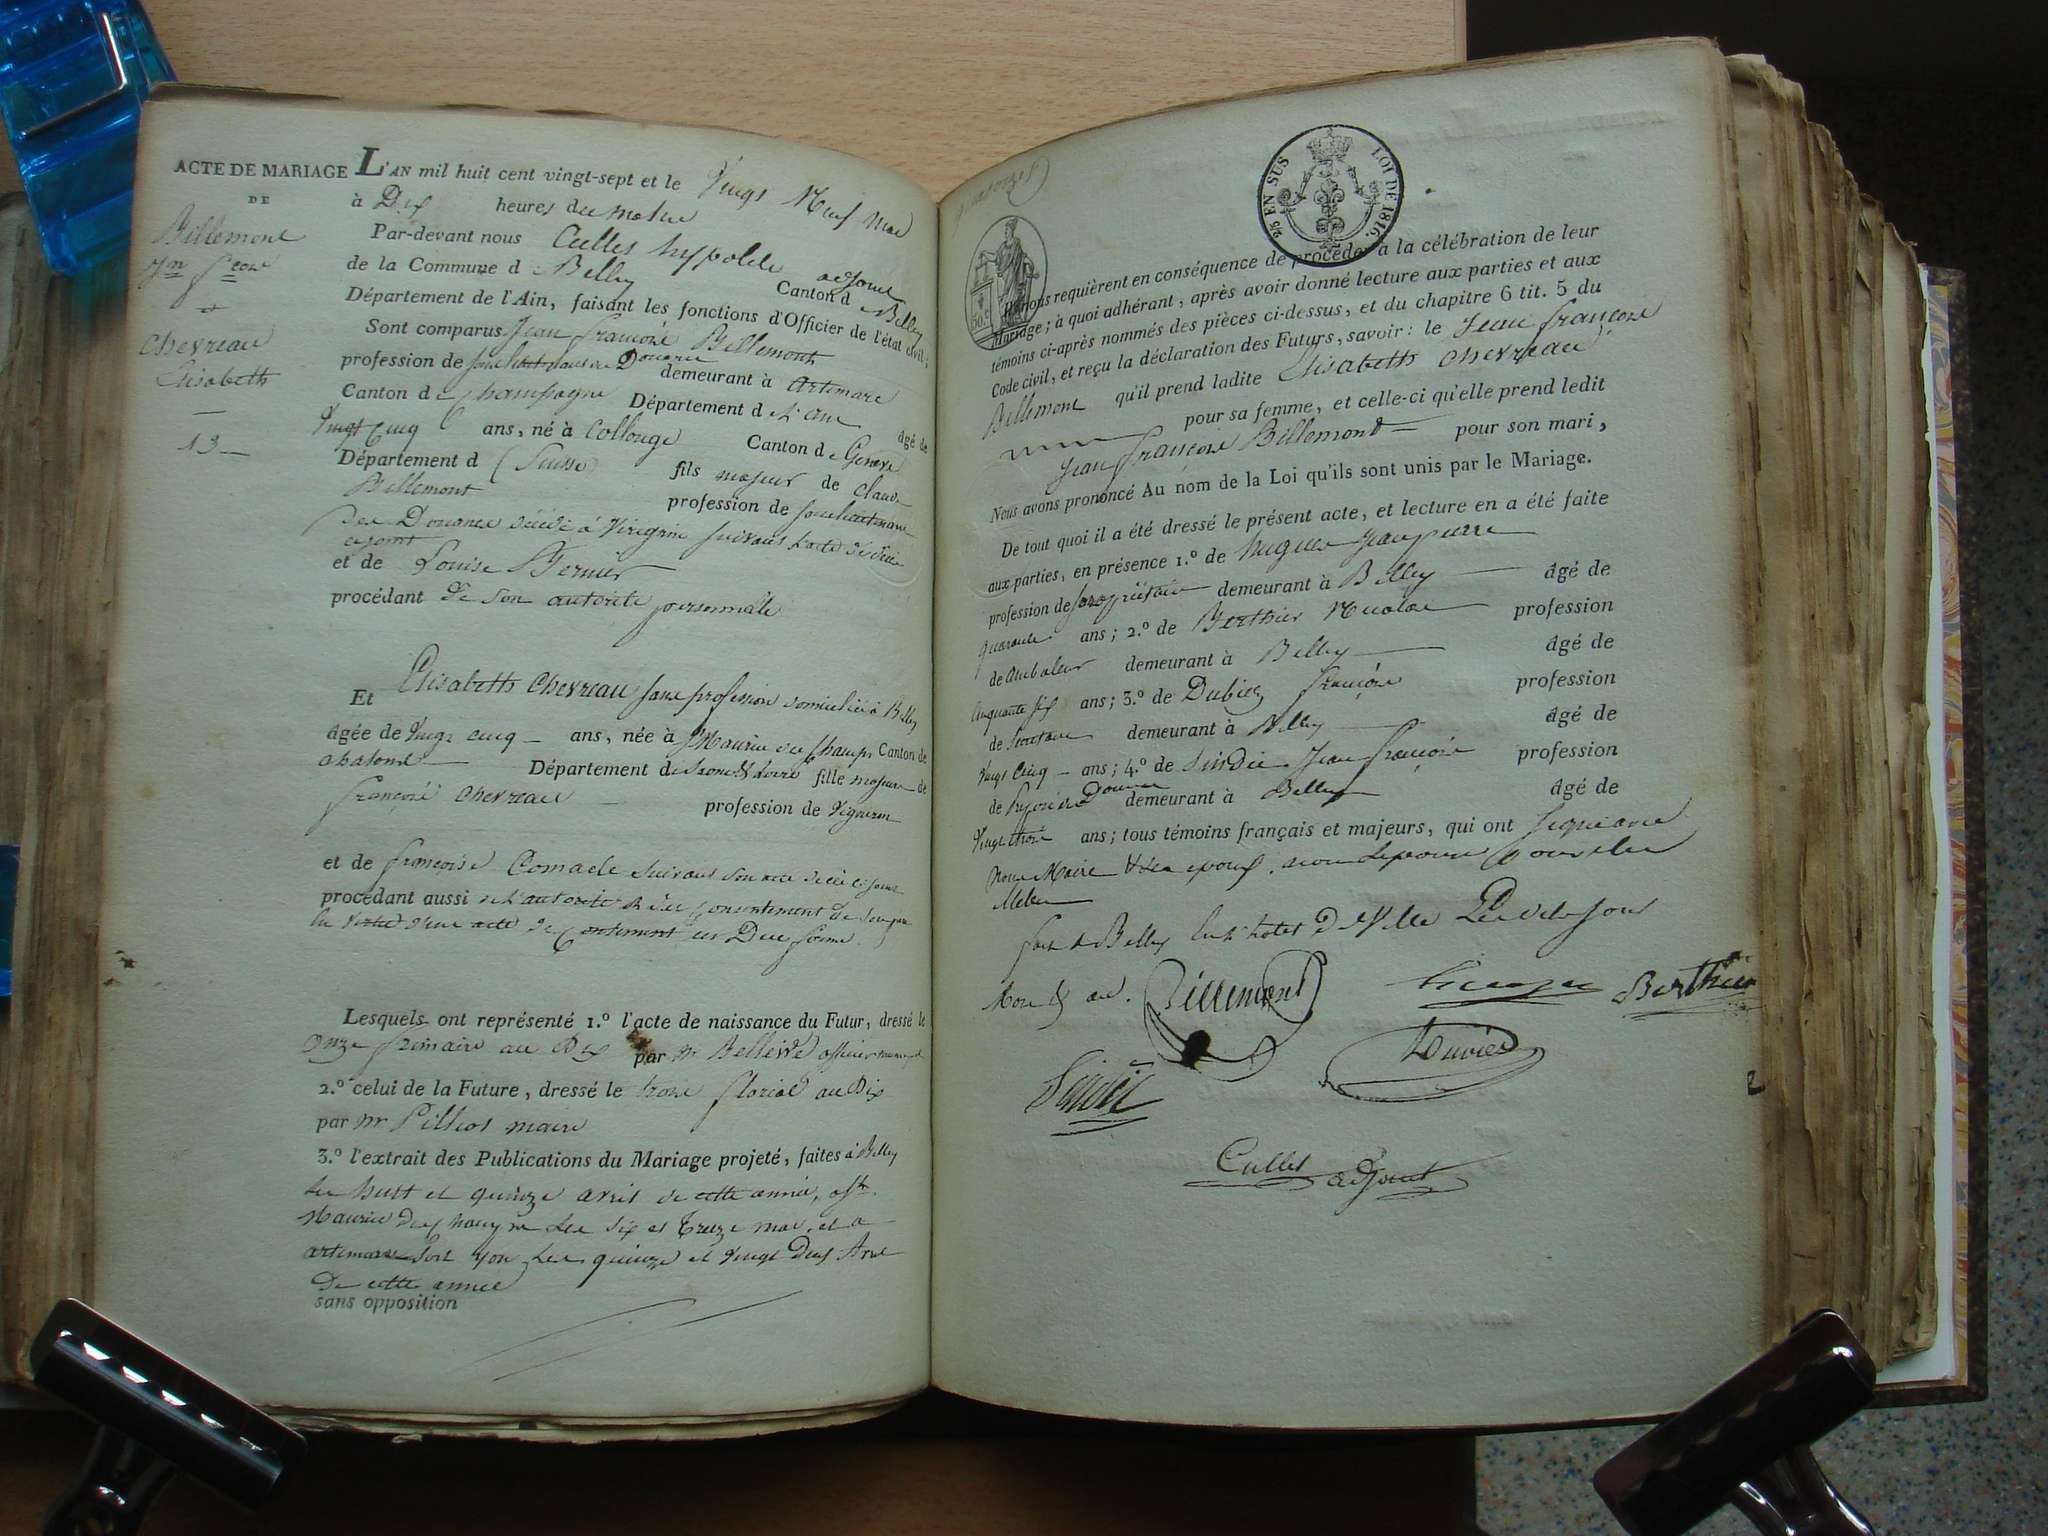 ACTE DE MARIAGE
DE
Billemont
Jn Fcois
et
Chevreau
Elisabeth
13
L'AN mil huit cent vingt-sept et le Vingt Neuf mai
à Dix heures du matin
Par-devant nous Cullet hyppolite adjoint
de la Commune d Belley Canton d Belley
Département de l'Ain, faisant les fonctions d'Officier de l'état civil;
Sont comparus Jean François Billemont
profession de des Douanes demeurant à Artemare
Canton de Champagne Département de L'ain agé de
Vingt Cinq ans, né à Collonge Canton de Geneve
Département d (Suisse) fils majeur de Claude
Billemont profession de
des Douanes décédé à Virignin suivant l'acte de décè
cejoint
et de Louise Bernier
procédant de son autorité personnelle
Et Elisabeth Chevreau sans profession domiciliée à Belley
agée de Vingt cinq ans, née à St Maurice des Champs Canton de
Département de Saone & Loire fille majeure de
François Chevreau profession de Vigneron
et de françoise suivant son acte de décè ci joint
procédant aussi de l'autorité & du consentement de son père
en vertu d'une acte de Contement en Due forme
Lesquels ont représenté 1.º l'acte de naissance du Futur, dressé le
Onze frimaire an Dix par Mr officier
2.º celui de la Future, dressé le trois floréal an Dix
par Mr maire
3.º l'extrait des Publications du Mariage projeté, faites à Belley
Les huit et quinze avril de cette année, a St
Maurice des Les Six et Treize mai, et a
artemare Les quinze et Vingt Deux Avril
De cette année
sans opposition
25 EN SUS
LOI DE 1816.
50.c
nous requièrent en conséquence de procéder à la célébration de leur
Mariage; à quoi adhérant, après avoir donné lecture aux parties et aux
témoins ci-après nommés des pièces ci-dessus, et du chapitre 6 tit. 5 du
Code civil, et reçu la déclaration des Futurs, savoir: le Jean françois
Billemont qu'il prend ladite Elisabeth Chevreau
pour sa femme, et celle-ci qu'elle prend ledit
Jean François Billemont pour son mari,
Nous avons prononcé Au nom de la Loi qu'ils sont unis par le Mariage.
De tout quoi il a été dressé le présent acte, et lecture en a été faite
aux parties, en présence 1.º de hugues Jean pierre
profession de propriétaire demeurant à Belley agé de
quarante ans; 2.º de Berthier Nicolas profession
de demeurant à Belley agé de
Cinquante six ans; 3.º de François profession
de Secretaire demeurant à Belley agé de
Vingt Cinq ans; 4.º de Jean François profession
de Douane demeurant à Belley agé de
Vingt trois ans; tous témoins français et majeurs, qui ont signé avec
Nous Maire & les epoux, non l'epouse pour
fait à Belley En l'hotel de Ville Les dits jour
Mois & an. Billemont Berthier
Cullet adjoint